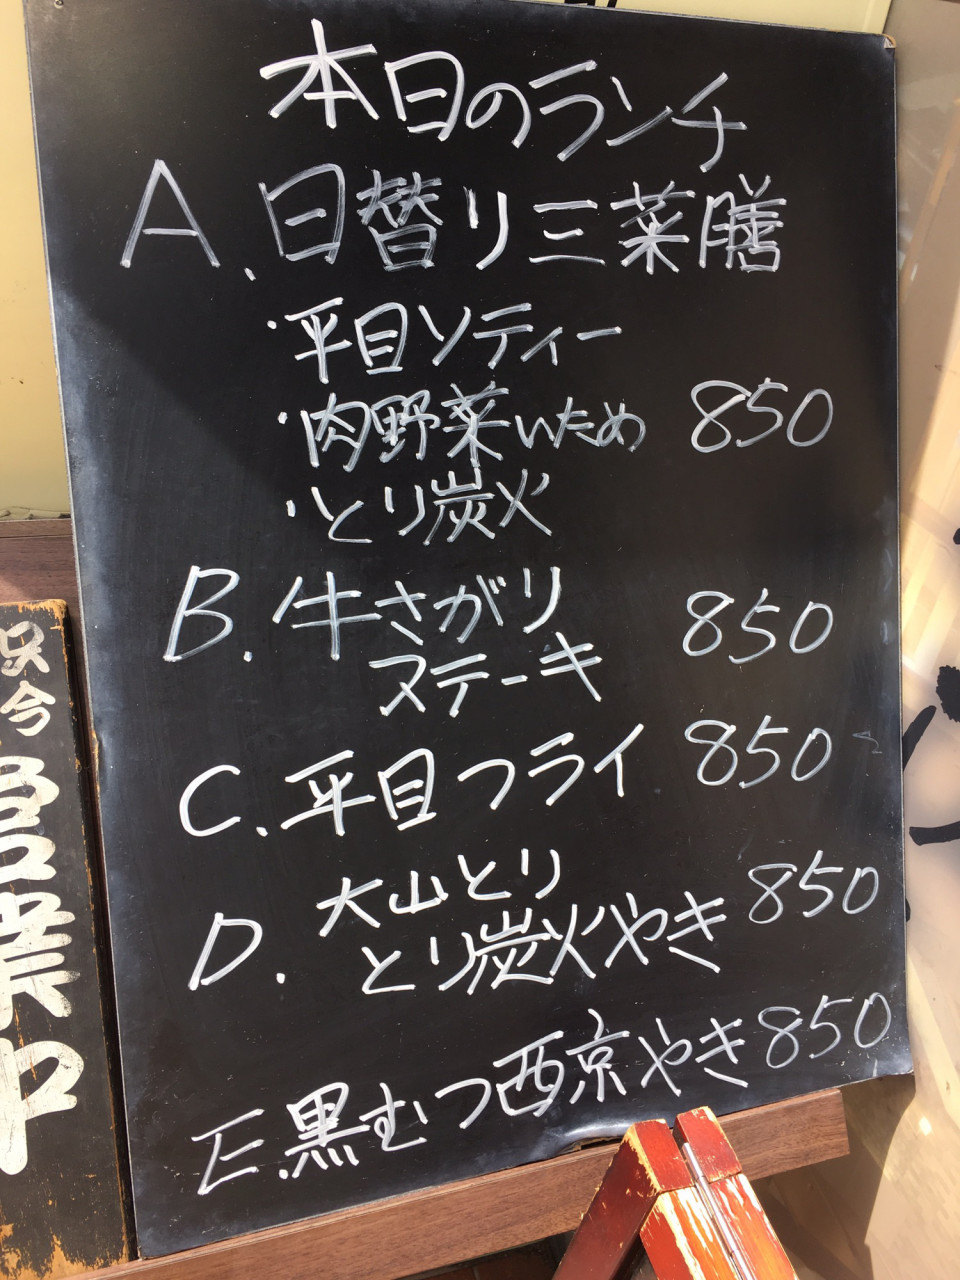 本日のランチ
A.日替り三菜膳
・平目ソティー
・肉野菜いため 850
・とり炭火
B.牛さがり
ステーキ 850
C.平目フライ 850
D.大山とり
とり炭火やき 850
E.黒むつ西京やき 850
只今
営業中